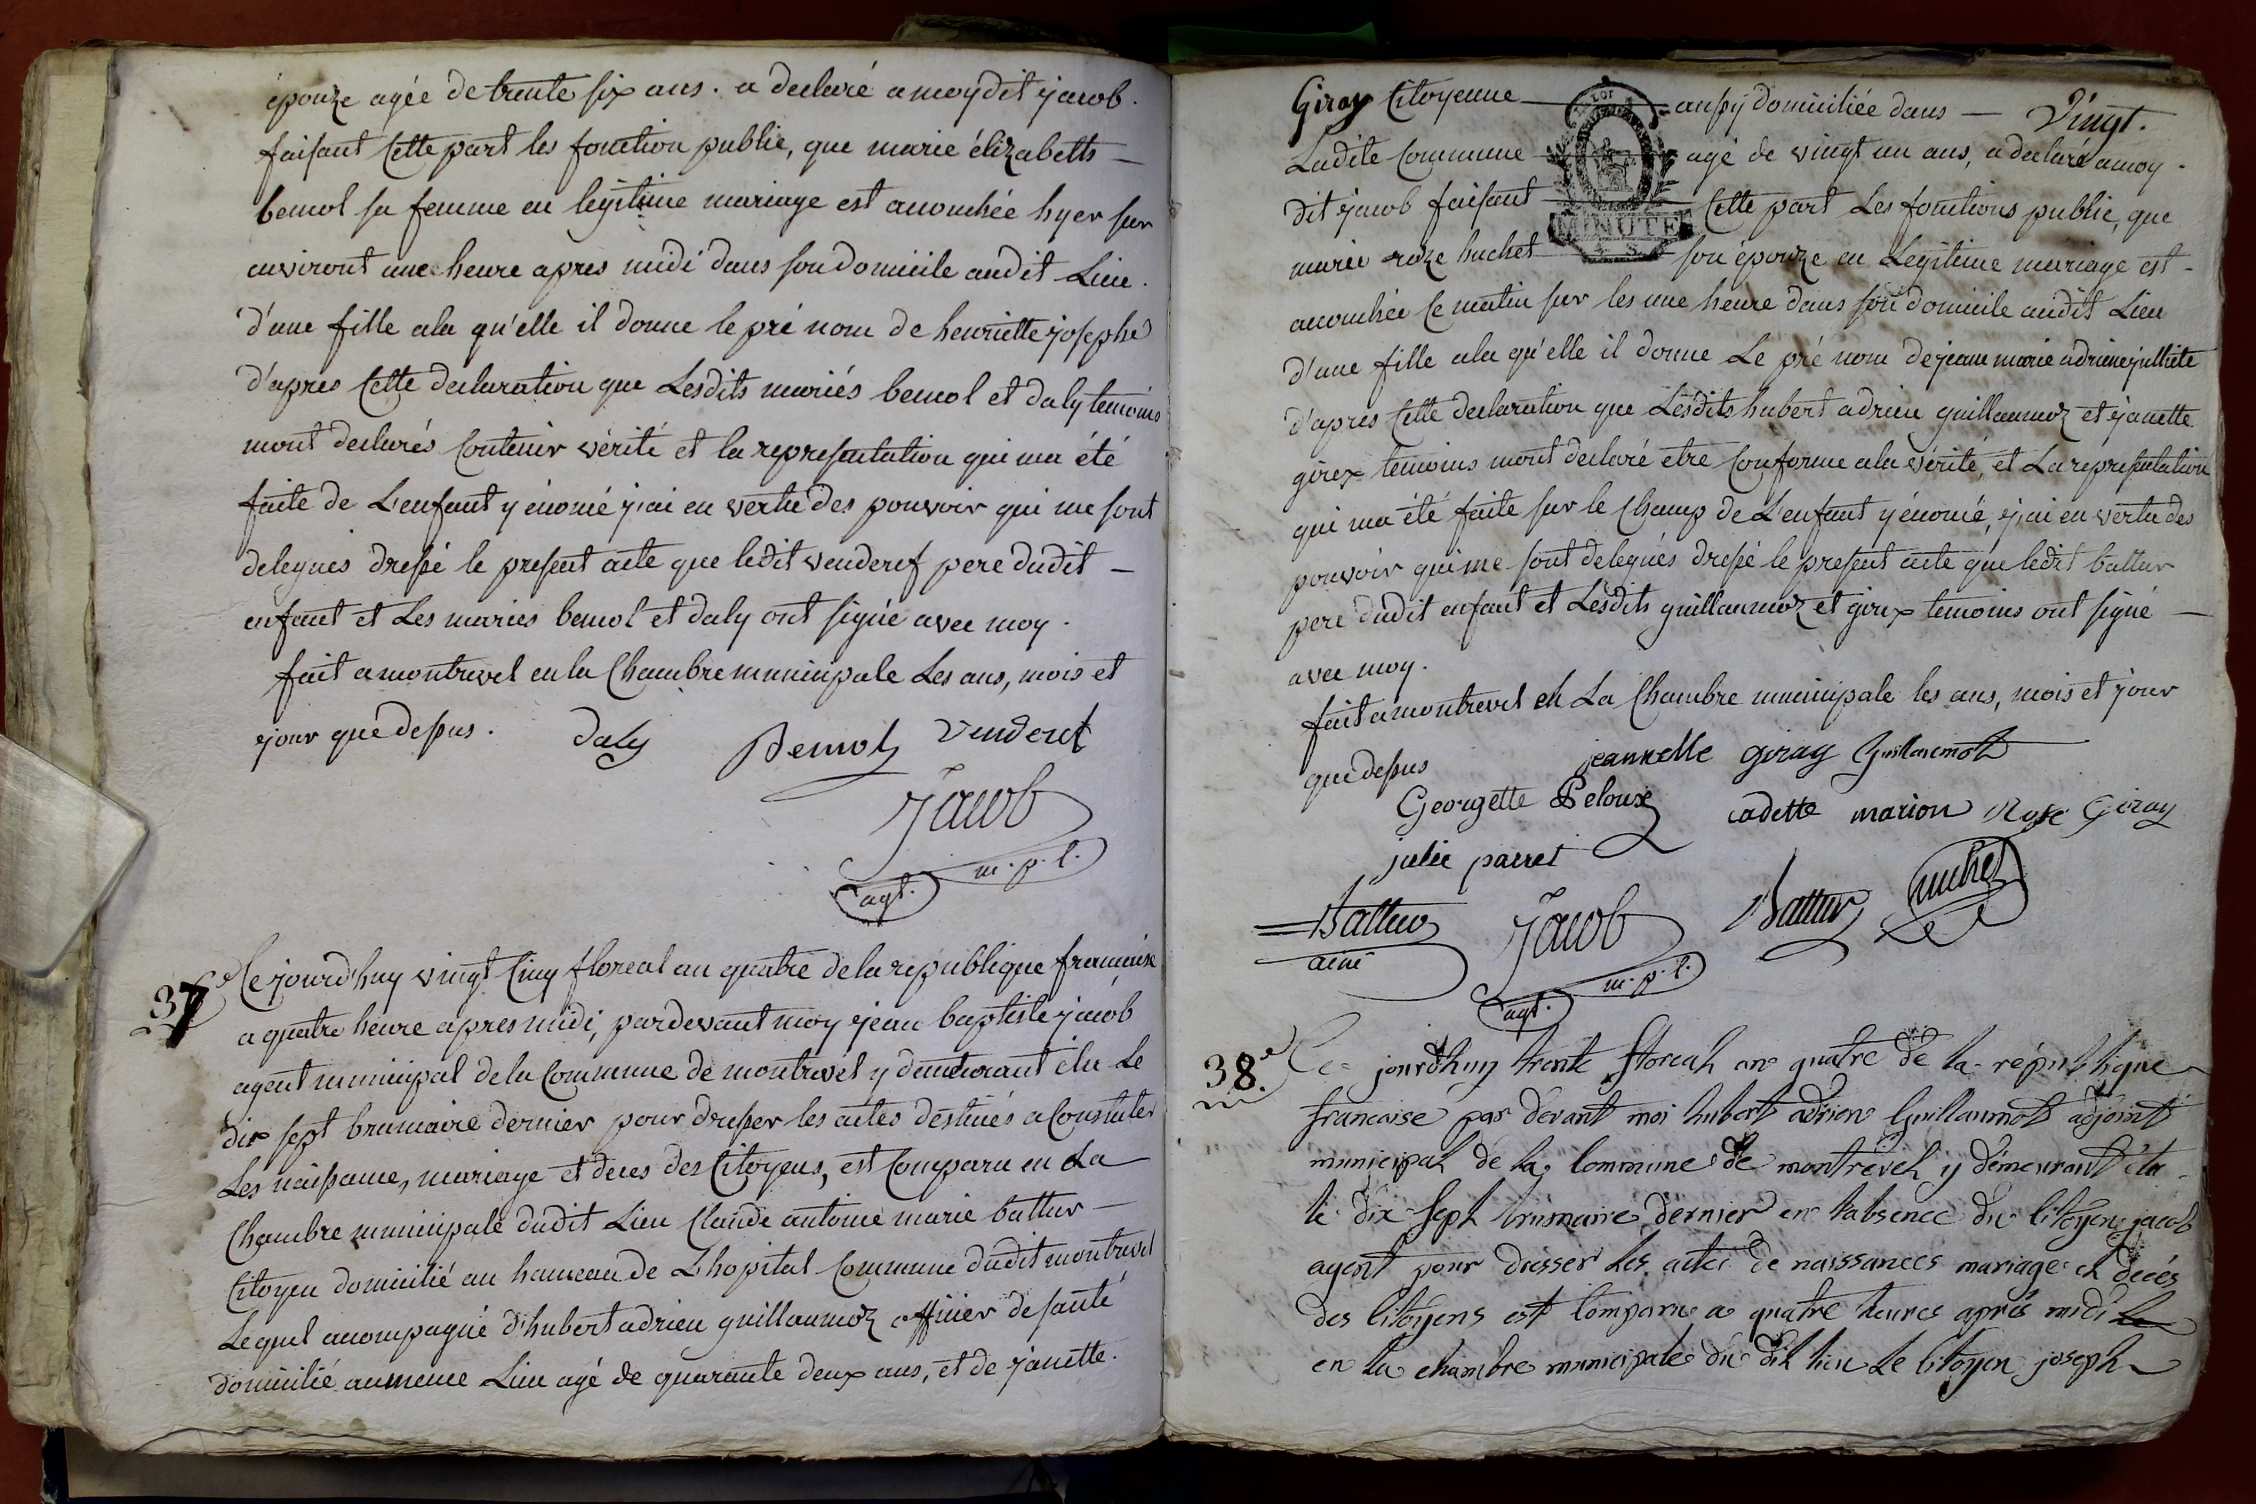 épouze agée de trente six ans. a declaré a moy dit jacob.
faisant cette part les fonction public, que marie élizabetts
bemol sa femme en legitime mariage est acouchée hyer sur
environt une heure apres midi dans son domicile audit Lieu.
d'une fille ala qu'elle il donne le pré nom de henriette josephe
d'apres cette declaration que Lesdits mariés bemol et daly temoins
mont declarés Contenir vérité et la representation qui ma été
faite de L'enfant y énomé j'ai en vertu des pouvoir qui me sont
delegués dressé le present acte que ledit venderet pere dudit
enfant et Les mariés bemol et daly ont signé avec moy.
fait a montrevel en la Chambre municipale Les ans, mois et
jour que dessus. Daly Bemol venderet
Jacob
agt. m.p.l.
37e Ce jourd'huy vingt Cinq floreal an quatre de la republique francaise
a quatre heure apres midi, pardevant moy jean baptiste jacob
agent municipal de la Commune de montrevel y demeurant élu Le
dix sept brumaire dernier pour dresser les actes destinés a Constater
Les naissance, mariage et deces des Citoyens, est Comparu en La
Chambre municipale dudit Lieu Claude antoine marie battur
Citoyen domicilié au hameau de L'hopital Commune dudit montrevel
Lequel acompagné d'hubert adrien guillaumoz officier de santé
domicilié au meme Lieu agé de quarante deux ans, et de janette.
Giray Citoyenne aussy domiciliée dans Vingt.
Ladite Commune agé de vingt un ans, a declaré a moy.
dit jacob faisant Cette part Les fonctions public, que
marie roze huchet son épouze en Legitime mariage est
MINUTE
acouchée Ce matin sur les une heure dans son domicile audit Lieu
d'une fille ala qu'elle il donne Le pré nom de jeanne marie adriene julliete
d'apres Cette declaration que Lesdits hubert adrien guillaumoz et janette
girex temoins mont declaré etre Conforme ala vérité, et La representation
qui ma été faite sur le Champ de L'enfant y énomé, j'ai en vertu des
pouvoir qui me sont delegués dressé le present acte que ledit battur
pere dudit enfant et Lesdits guillaumoz et girex temoins ont signé
avec moy.
fait a montrevel en La Chambre municipale les ans, mois et jour
que dessus jeannette giray Guillaumot
Georgette Peloux cadette marion Rose Giray
julie parret
Battur Jacob Battur huchet
ainé
agt. m.p.l.
38.e Ce jourdhuy trente floreal an quatre de la république
francaise par devant moi hubert adrien Guillaumot adjoint
municipal de la Commune de montrevel y démeurant élu
le dix sept brumaire dernier en l'absence du Citoyen jacob
agent pour dresser les actes de naissances mariage et decés
des Citoyens est Comparu a quatre heures après midi
en la chambre municipale du dit lieu Le Citoyen joseph